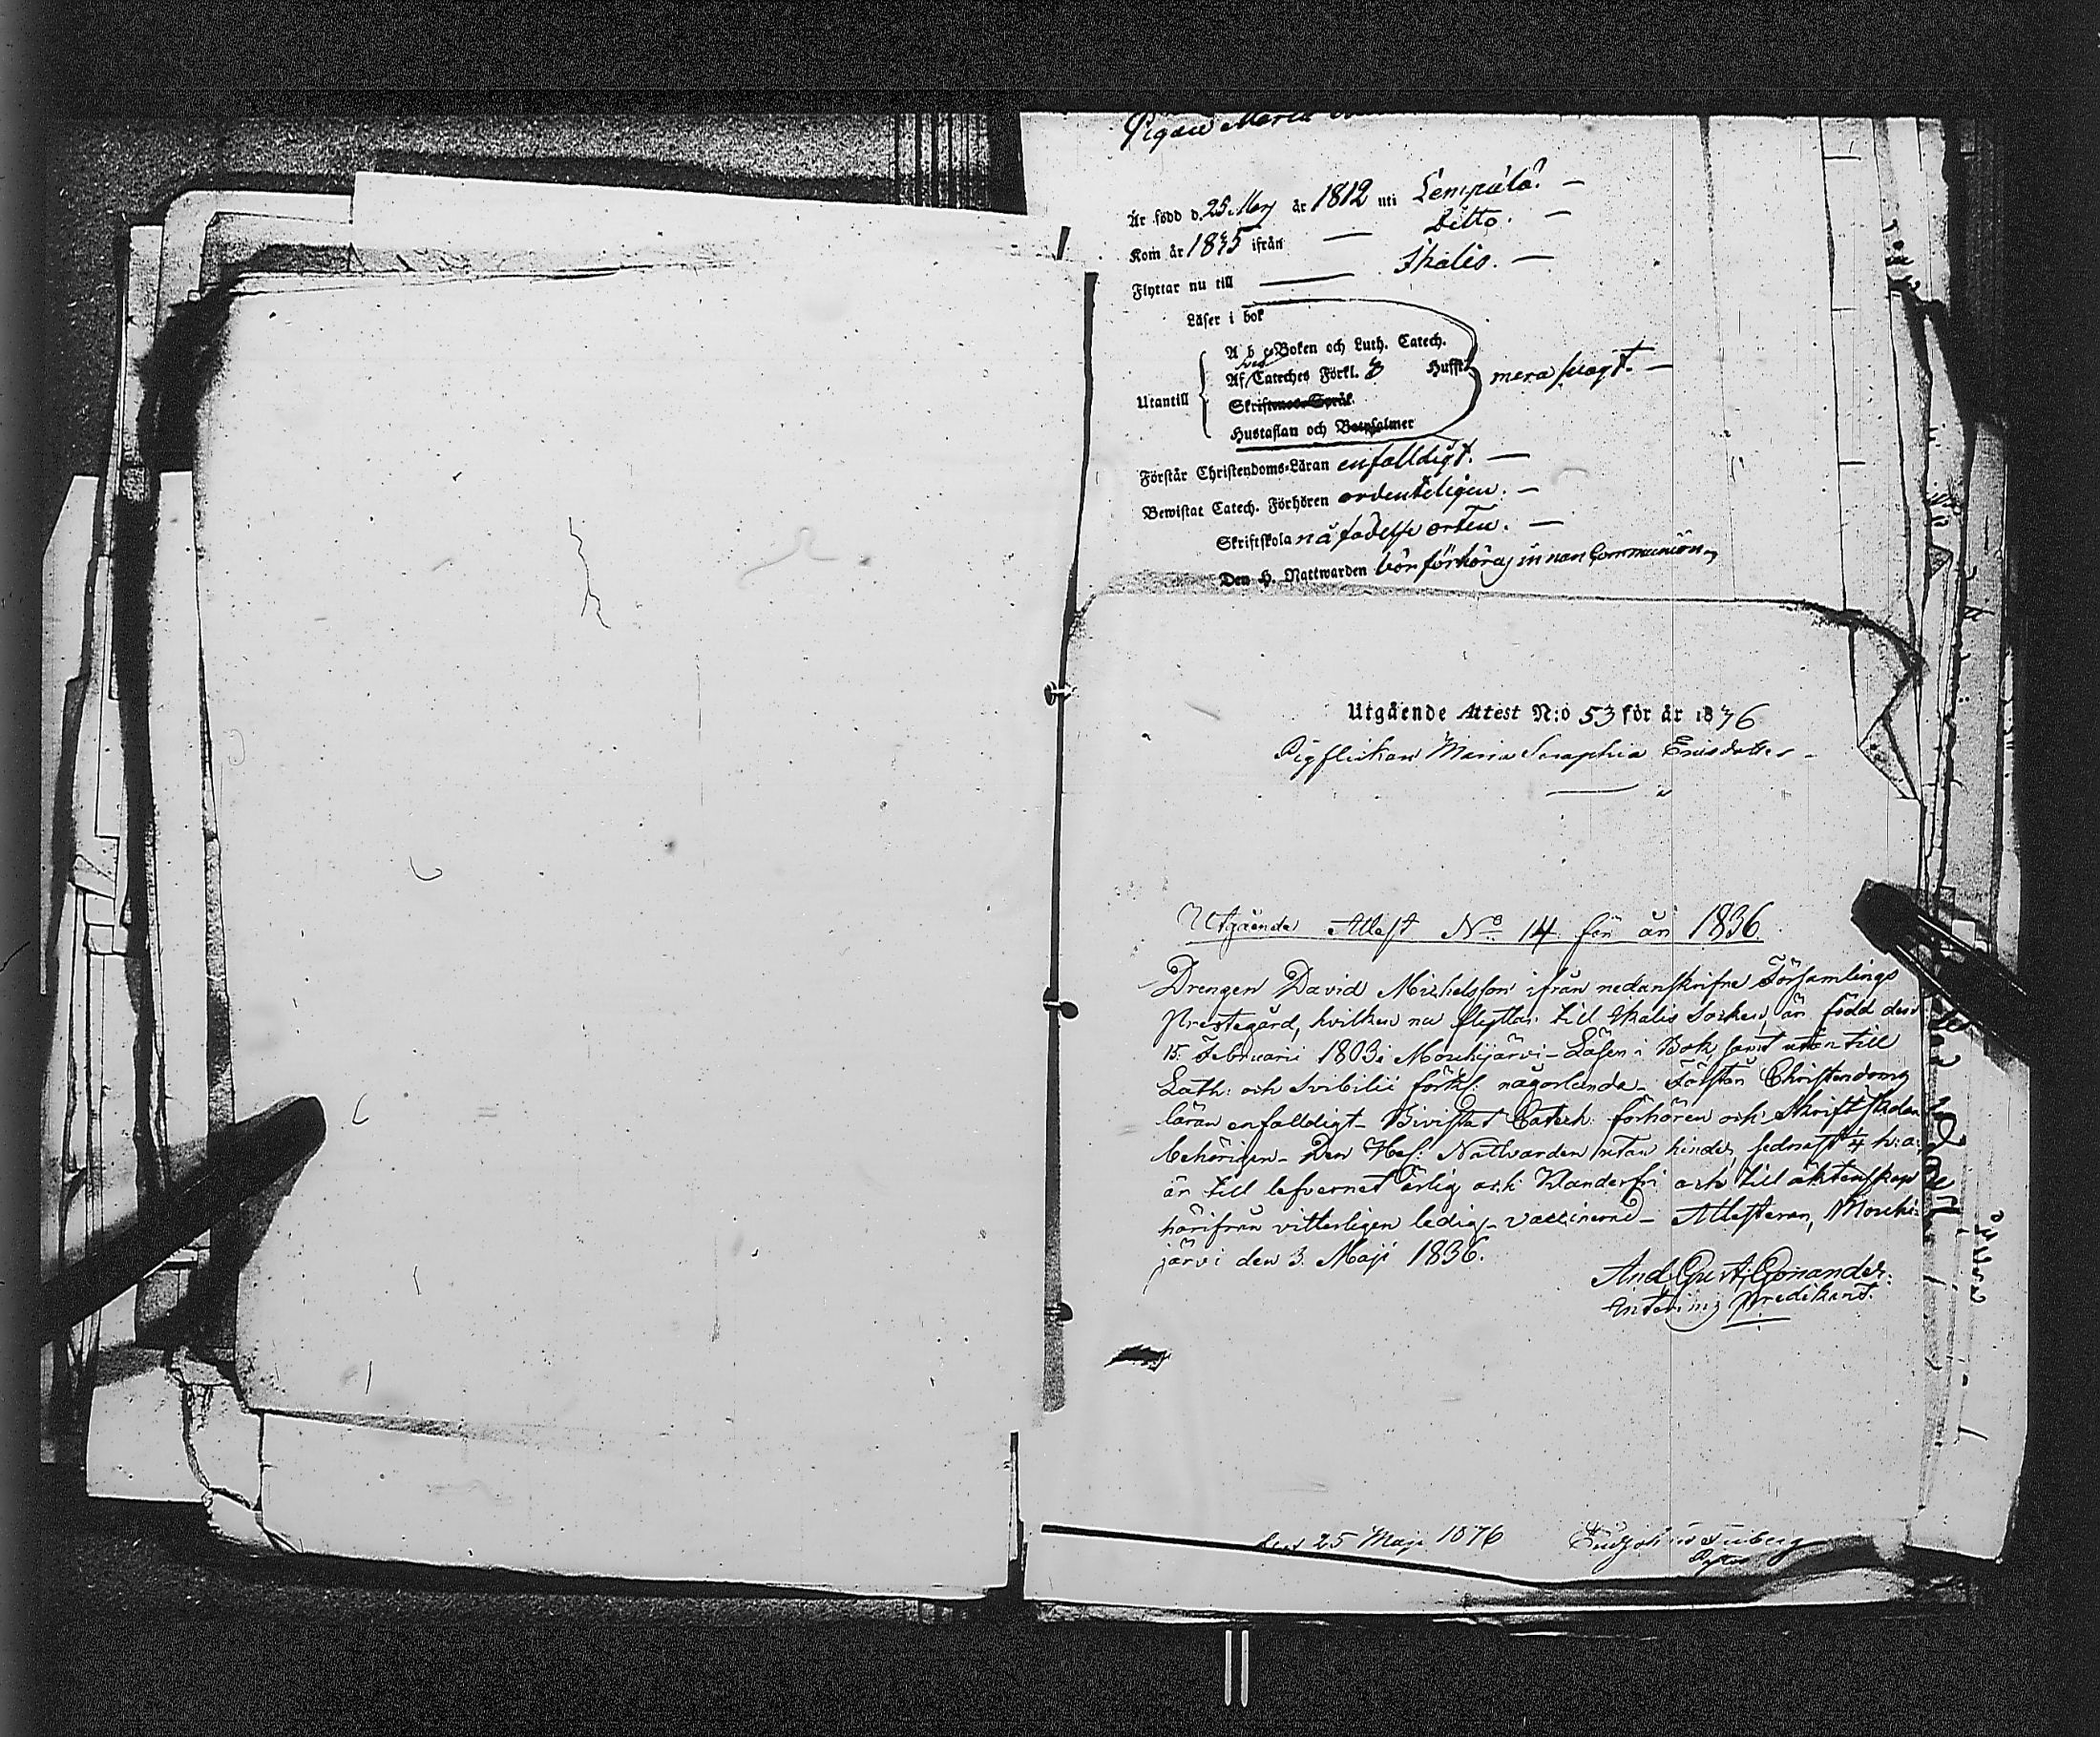 Pigan Maria
Är född d. 25 Maij år 1812 uti Lempälä. —
Kom år 1835 ifrån — Ditto. —
Flyttar nu till — Ikalis. —
Läser i bok
A b c-Boken och Luth. Catech.
Af Sveb Cateches Förkl. Husft
Utantill
Skriftenes Språk
mera svagt. —
Hustaflan och Botpsalmer
Förstår Christendoms-Läran enfalldigt. —
Bewistat Catech. Förhören ordenteligen. —
Skriftskola på födelse orten. —
Den H. Nattwarden bör förhöras innan Communion
Utgående Attest N:o 53 för år 1836
Pigflickan Maria Seraphia Ericsdotter —
Utgående Attest No 14 för år 1836
Drengen David Michelsson ifrån nedanskrifne Församlings
Prestegård, hvilken nu flyttar till Ikalis Socken, är född den
15. Februarii 1803 i Mouhijärvi — Läser i Bok, samt utan till
Luth: och Svibilii förkl: någorlunda — Förstår Christendoms
läran enfalldigt — Bivistat Catech: förhören och Skriftskolan
behörigen — Den Hel: Nattvarden utan hinder, sednast 4 h: a:
är till lefvernet ärlig och Klanderfri och till äktenskap
härifrån vitterligen ledig — Vaccinerad — Attesterar, Mouhi-
järvi den 3. Maji 1836.
And Gust: Gonander.
Interims Predikant.
den 25 Maji 1836